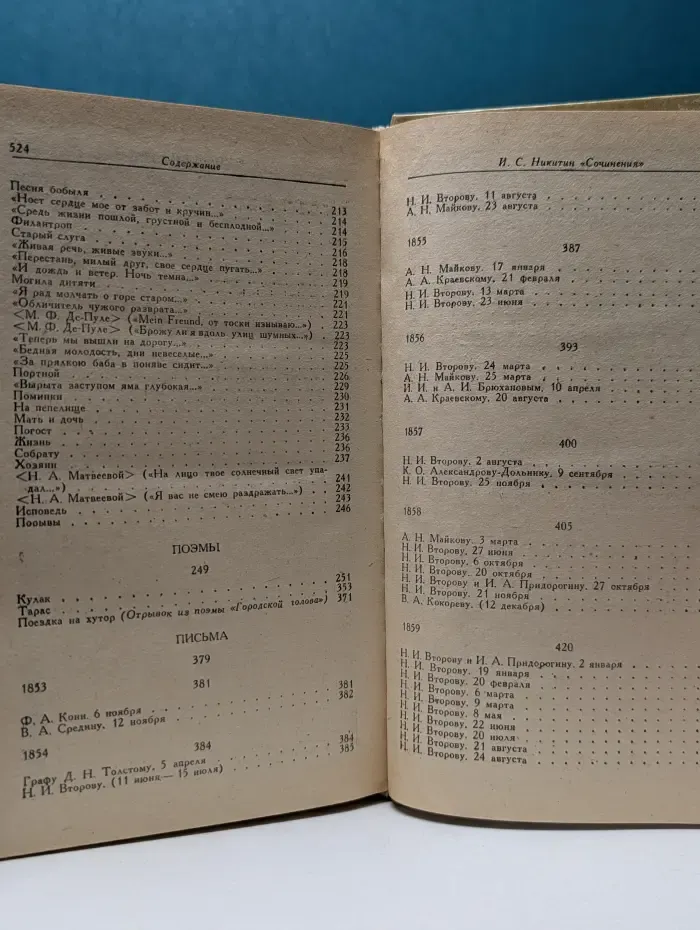 524
Содержание
Песня бобыля . . . 213
«Ноет сердце мое от забот и кручин...» . . . 214
«Средь жизни пошлой, грустной и бесплодной...» . . . 214
Филантроп . . . 215
Старый слуга . . . 216
«Живая речь, живые звуки...» . . . 218
«Перестань, милый друг, свое сердце пугать...» . . . 218
«И дождь и ветер. Ночь темна...» . . . 219
Могила дитяти . . . 219
«Я рад молчать о горе старом...» . . . 221
«Обличитель чужого разврата...» . . . 221
<М. Ф. Де-Пуле> («Mein Freund, от тоски изнываю...») . . . 223
<М. Ф. Де-Пуле> («Брожу ли я вдоль улиц шумных...») . . . 223
«Теперь мы вышли на дорогу...» . . . 223
«Бедная молодость, дни невеселые...» . . . 225
«За прялкою баба в поняве сидит...» . . . 225
Портной . . . 226
«Вырыта заступом яма глубокая...» . . . 229
Поминки . . . 230
На пепелище . . . 231
Мать и дочь . . . 232
Погост . . . 233
Жизнь . . . 236
Собрату . . . 236
Хозяин . . . 237
<Н. А. Матвеевой> («На лицо твое солнечный свет упа-
дал...») . . . 241
<Н. А. Матвеевой> («Я вас не смею раздражать...») . . . 242
Исповедь . . . 243
Порывы . . . 246
ПОЭМЫ
249
Кулак . . . 251
Тарас . . . 353
Поездка на хутор (Отрывок из поэмы «Городской голова») 371
ПИСЬМА
379
1853 381
Ф. А. Кони. 6 ноября . . . 381
В. А. Средину, 12 ноября . . . 382
1854 384
Графу Д. Н. Толстому, 5 апреля . . . 384
Н. И. Второву. (11 июня — 15 июля) . . . 385
И. С. Никитин «Сочинения»
Н. И. Второву. 11 августа
А. Н. Майкову. 23 августа
1855
387
А. Н. Майкову. 17 января
А. А. Краевскому, 21 февраля
Н. И. Второву, 13 марта
Н. И. Второву, 23 июня
1856
393
Н. И. Второву. 24 марта
А. Н. Майкову. 25 марта
И. И. и А. И. Брюхановым, 10 апреля
А. А. Краевскому, 20 августа
1857
400
Н. И. Второву. 2 августа
К. О. Александрову-Дольнику. 9 сентября
Н. И. Второву. 25 ноября
1858
405
А. Н. Майкову. 3 марта
Н. И. Второву, 27 июня
Н. И. Второву. 6 октября
Н. И. Второву. 20 октября
Н. И. Второву и И. А. Придорогину. 27 октября
Н. И. Второву. 21 ноября
В. А. Кокореву. (12 декабря)
1859
420
Н. И. Второву и И. А. Придорогину. 2 января
Н. И. Второву. 19 января
Н. И. Второву. 20 февраля
Н. И. Второву. 6 марта
Н. И. Второву. 9 марта
Н. И. Второву. 8 мая
Н. И. Второву, 22 июня
Н. И. Второву. 20 июля
Н. И. Второву. 21 августа
Н. И. Второву. 24 августа